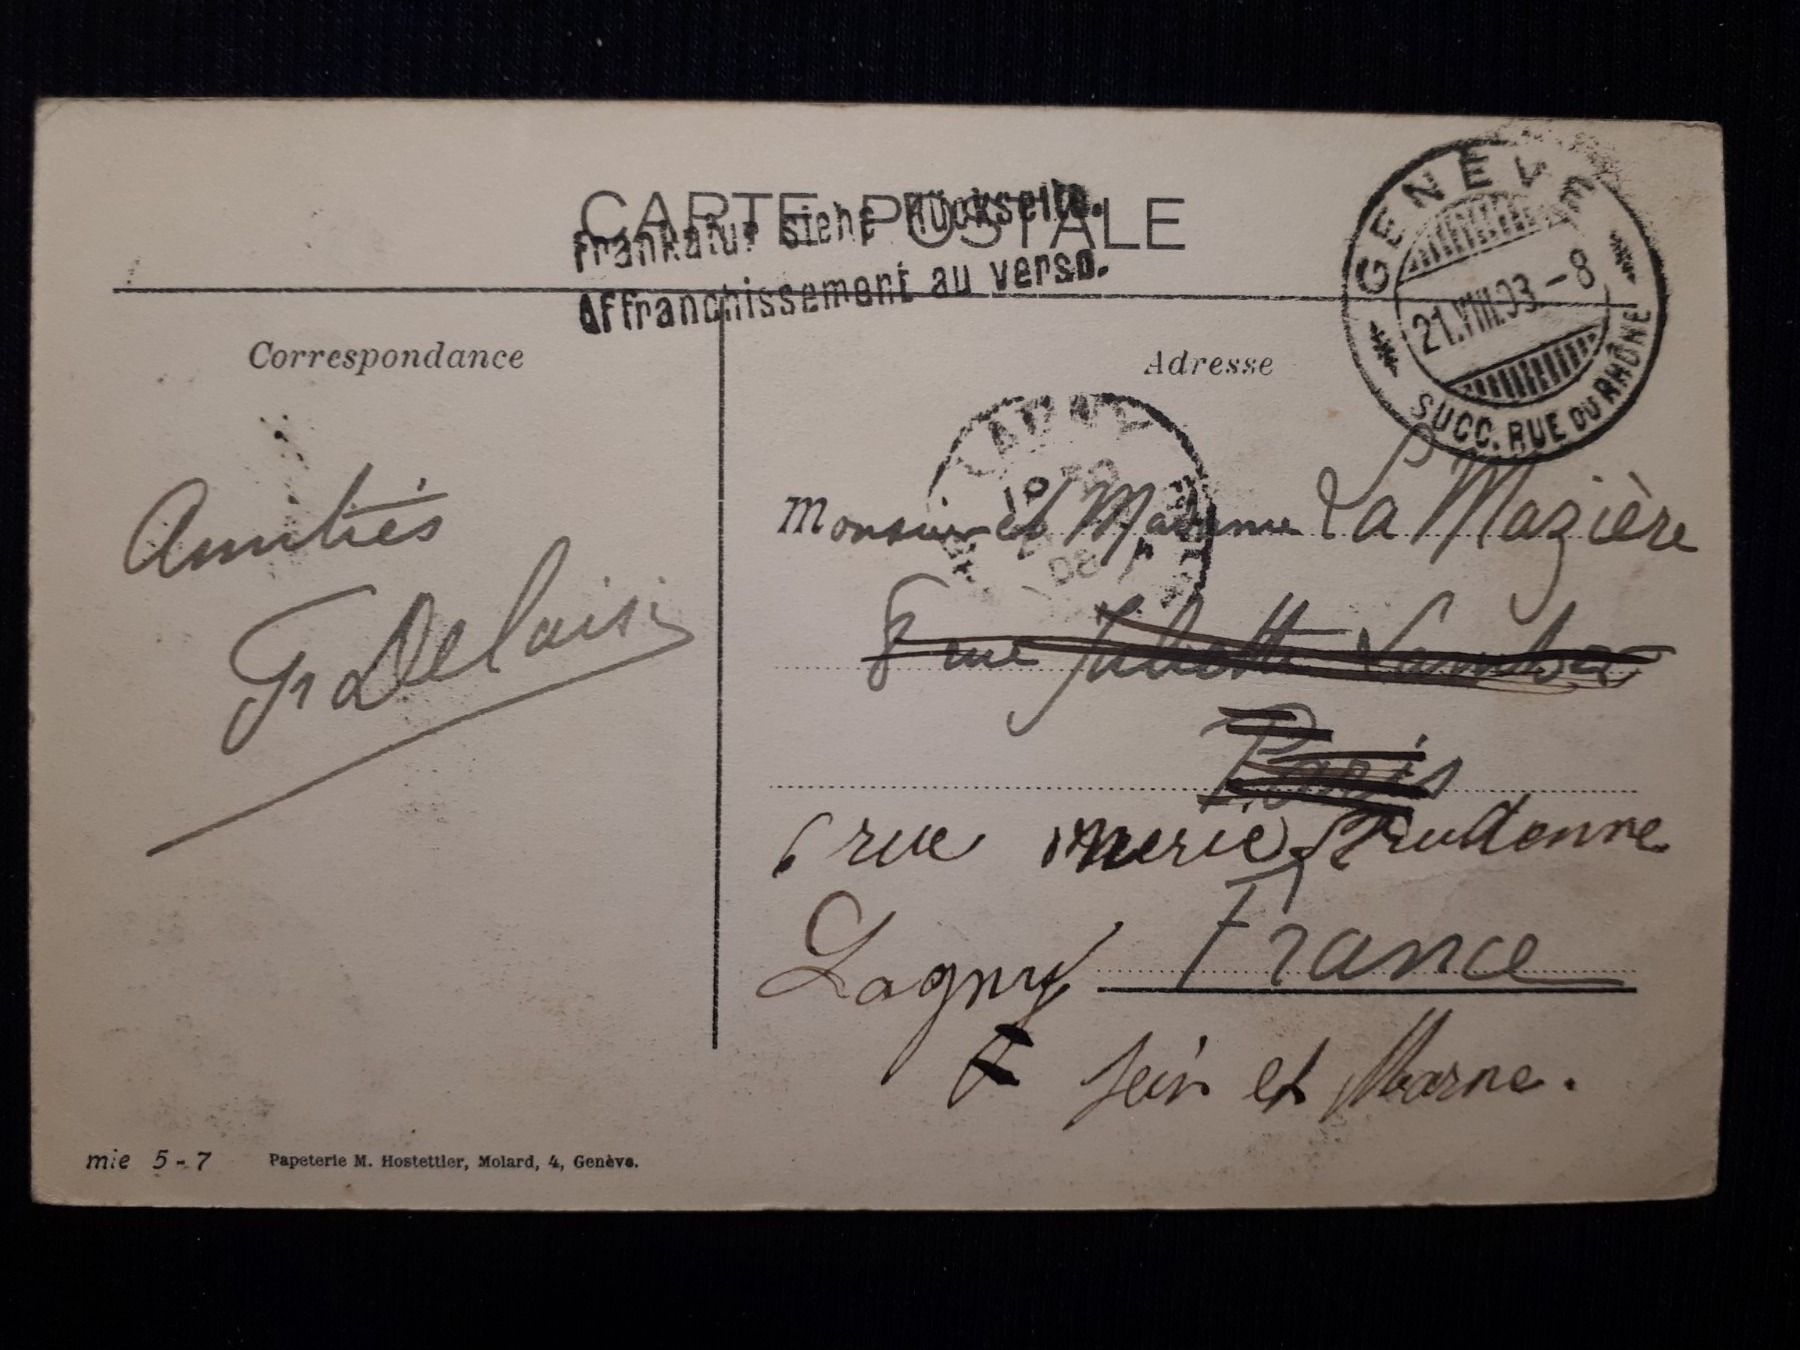 CARTE POSTALE
Frankatur siehe Rückseite.
Affranchissement au verso.
GENEVE
21.VIII.03.-8
SUCC. RUE DU RHÔNE
Correspondance
Adresse
LAGNY
08
Amitiés
Fr Delaisi
Monsieur et Madame La Mazière
8 rue Juliette Lamber
Paris
6 rue
Lagny France
Sein et Marne.
mie 5-7
Papeterie M. Hostettler, Molard, 4, Genève.